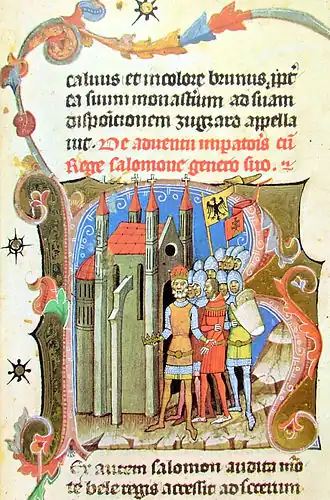 caluus et in colore brunus, ipt
ca suum monastium ad suam
dispositionem zugzard appella
uit. De aduentu imparatois cū
Rege salomone genero suo.
R
Ex autem salomon audita mo
te bele regis accessit ad socerum